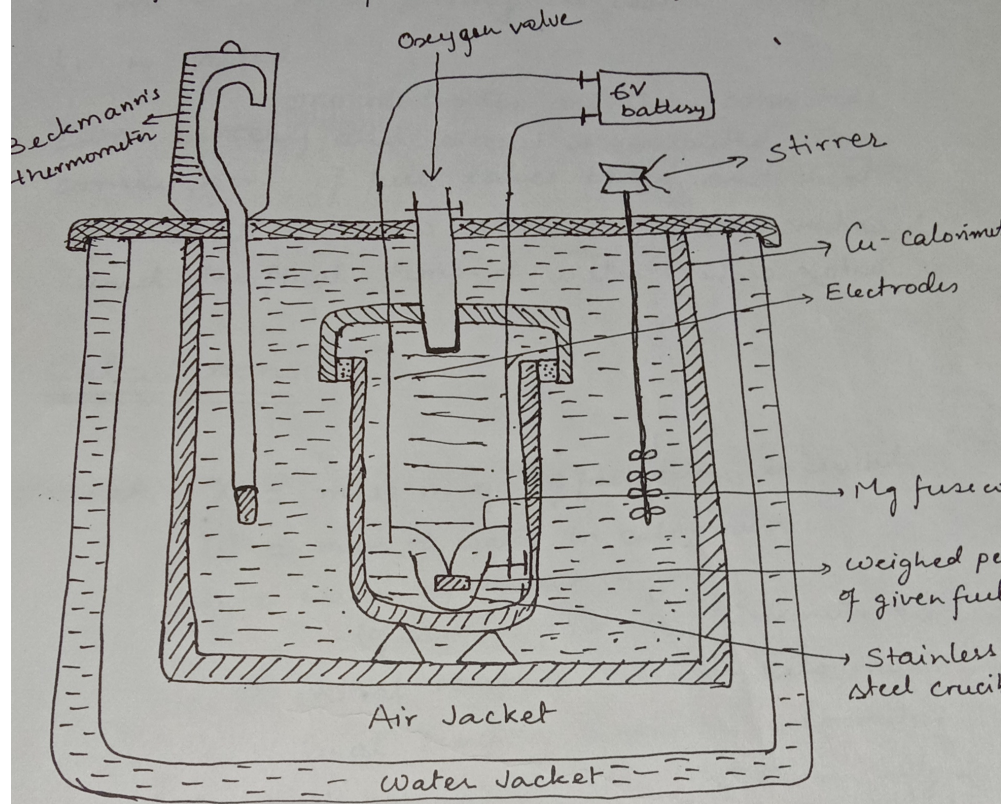 Oxygen valve
6V
battery
Beckmann's
thermometer
Stirrer
Electrodes
Mg fuse
weighed
of given fuel
Stainless
steel
Air Jacket
Water Jacket